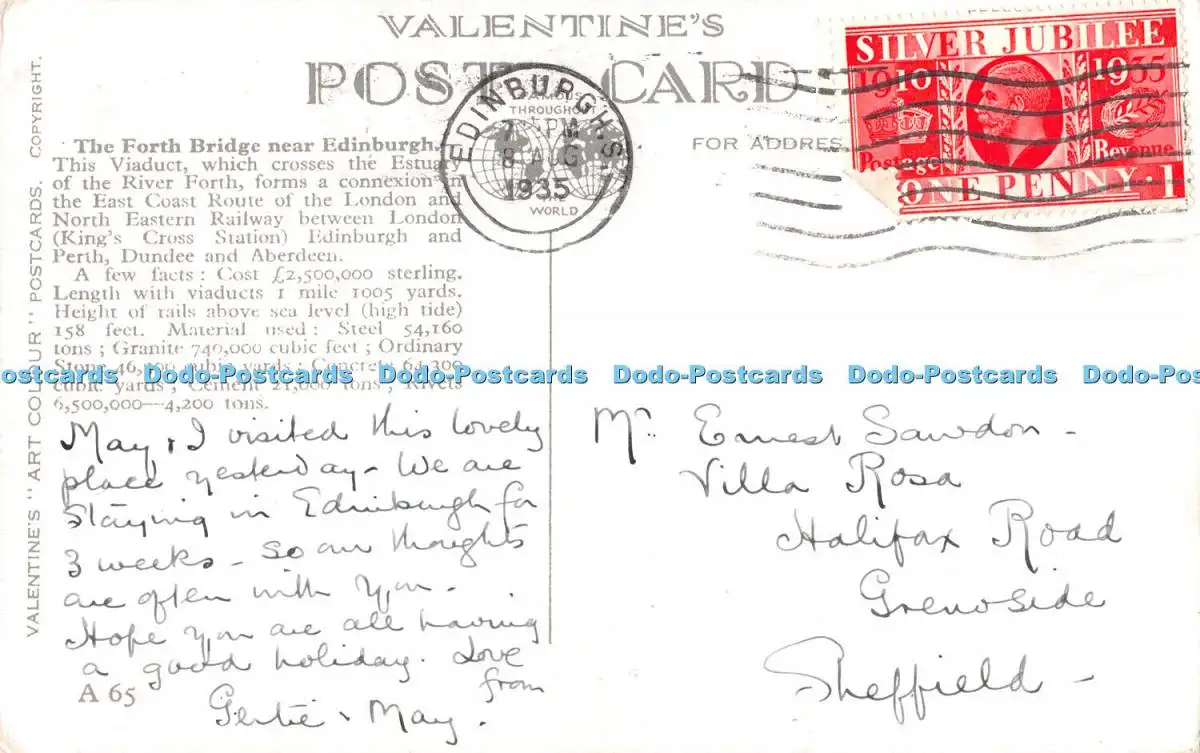 VALENTINE'S
POST CARD
FAMOUS
THROUGHOUT
WORLD
EDINBURGH
PM
8 AUG
1935
SILVER JUBILEE
1910 1935
Postage Revenue
ONE PENNY · 1
FOR ADDRES
VALENTINE'S "ART COLOUR" POSTCARDS. COPYRIGHT.
The Forth Bridge near Edinburgh.
This Viaduct, which crosses the Estuary
of the River Forth, forms a connexion in
the East Coast Route of the London and
North Eastern Railway between London
(King's Cross Station) Edinburgh and
Perth, Dundee and Aberdeen.
A few facts : Cost £2,500,000 sterling.
Length with viaducts 1 mile 1005 yards.
Height of rails above sea level (high tide)
158 feet. Material used : Steel 54,160
tons ; Granite 740,000 cubic feet ; Ordinary
Stone cubic yards ; Concrete 64,300
cubic yards ; Cement 21,000 tons ; Rivets
6,500,000—4,200 tons.
ostcards Dodo-Postcards Dodo-Postcards Dodo-Postcards Dodo-Postcards Dodo-Postc
May & I visited this lovely
place yesterday - We are
staying in Edinburgh for
3 weeks - so our thoughts
are often with you -
Hope you are all having
a good holiday. Love
from
Gertie & May.
A 65
Mr. Ernest Sawdon -
Villa Rosa
Halifax Road
Grenoside
Sheffield -